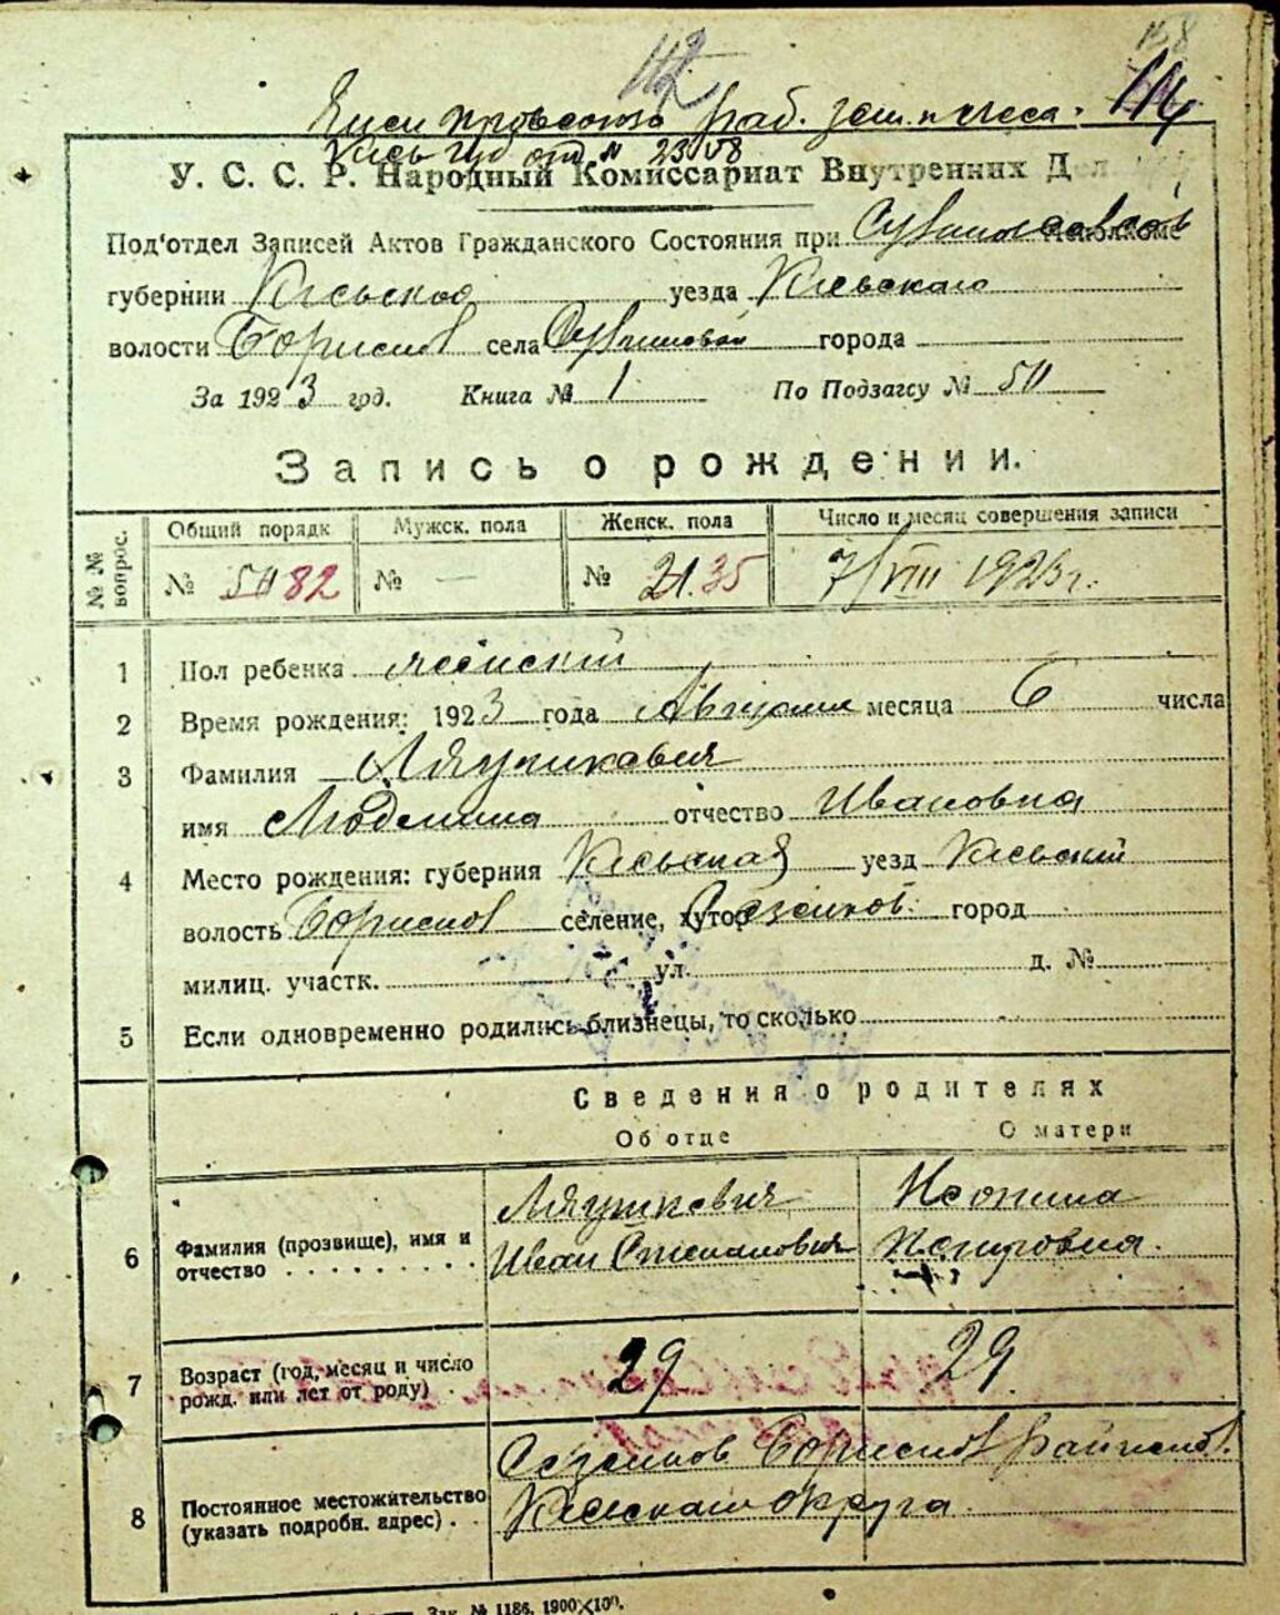 112
114
У. С. С. Р. Народный Комиссариат Внутренних Дел
Под'отдел Записей Актов Гражданского Состояния при
губернии Киевской уезда Киевского
волости села города
За 1923 год. Книга № 1 По Подзагсу № 50
Запись о рождении.
№ № вопрос. Общий порядк Мужск. пола Женск. пола Число и месяц совершения записи
№ 50 82 № — № 21. 35 7/VIII 1923 г.
1 Пол ребенка женский
2 Время рождения: 1923 года Августа месяца 6 числа
3 Фамилия Ляушкевич
имя отчество Ивановна
4 Место рождения: губерния Киевская уезд Киевский
волость селение, хутор город
милиц. участк. ул. д. №
5 Если одновременно родились близнецы, то сколько
Сведения о родителях
Об отце О матери
6 Фамилия (прозвище), имя и отчество Ляушкевич Иван Степанович Неонила Петровна.
7 Возраст (год, месяц и число рожд. или лет от роду) 29 29
8 Постоянное местожительство (указать подробн. адрес)
округа.
Зак. № 1186. 1900×100.